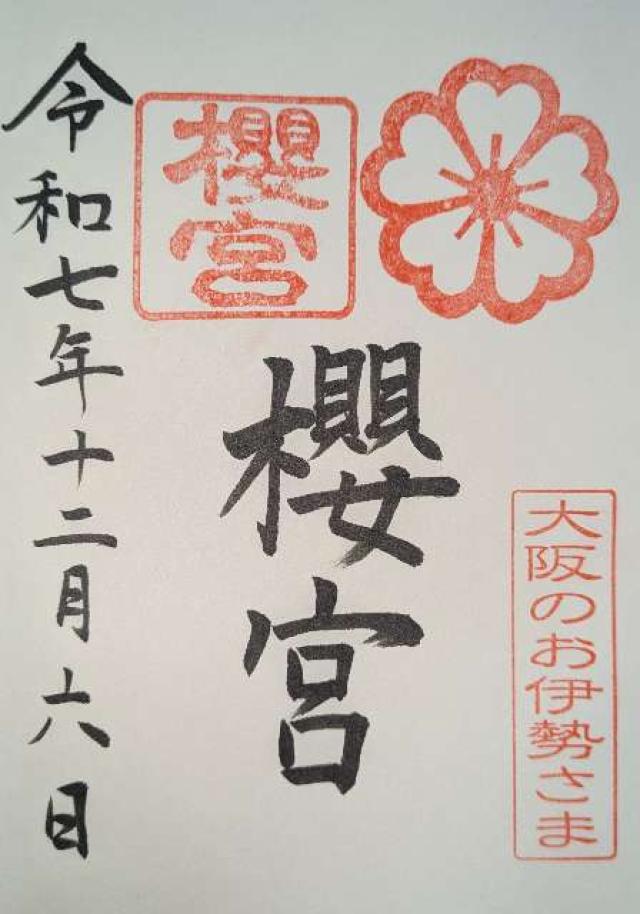 大阪のお伊勢さま
櫻宮
櫻宮
令和七年十二月六日